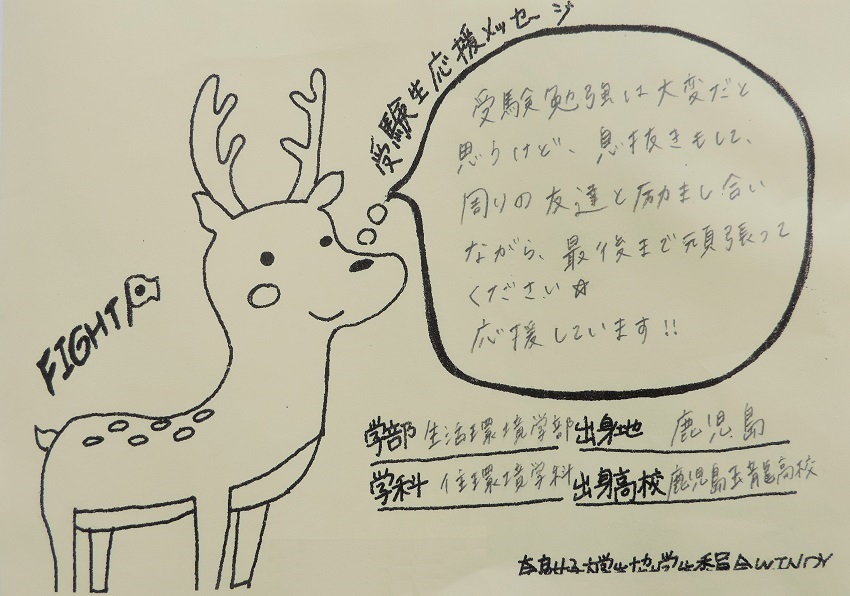 受験生応援メッセージ
受験勉強は大変だと
思うけど、息抜きもして、
周りの友達と励まし合い
ながら、最後まで頑張って
ください☆
応援しています!!
FIGHT
学部 生活環境学部 出身地 鹿児島
学科 住環境学科 出身高校 鹿児島玉龍高校
奈良女子大学生協学生委員会WINDY